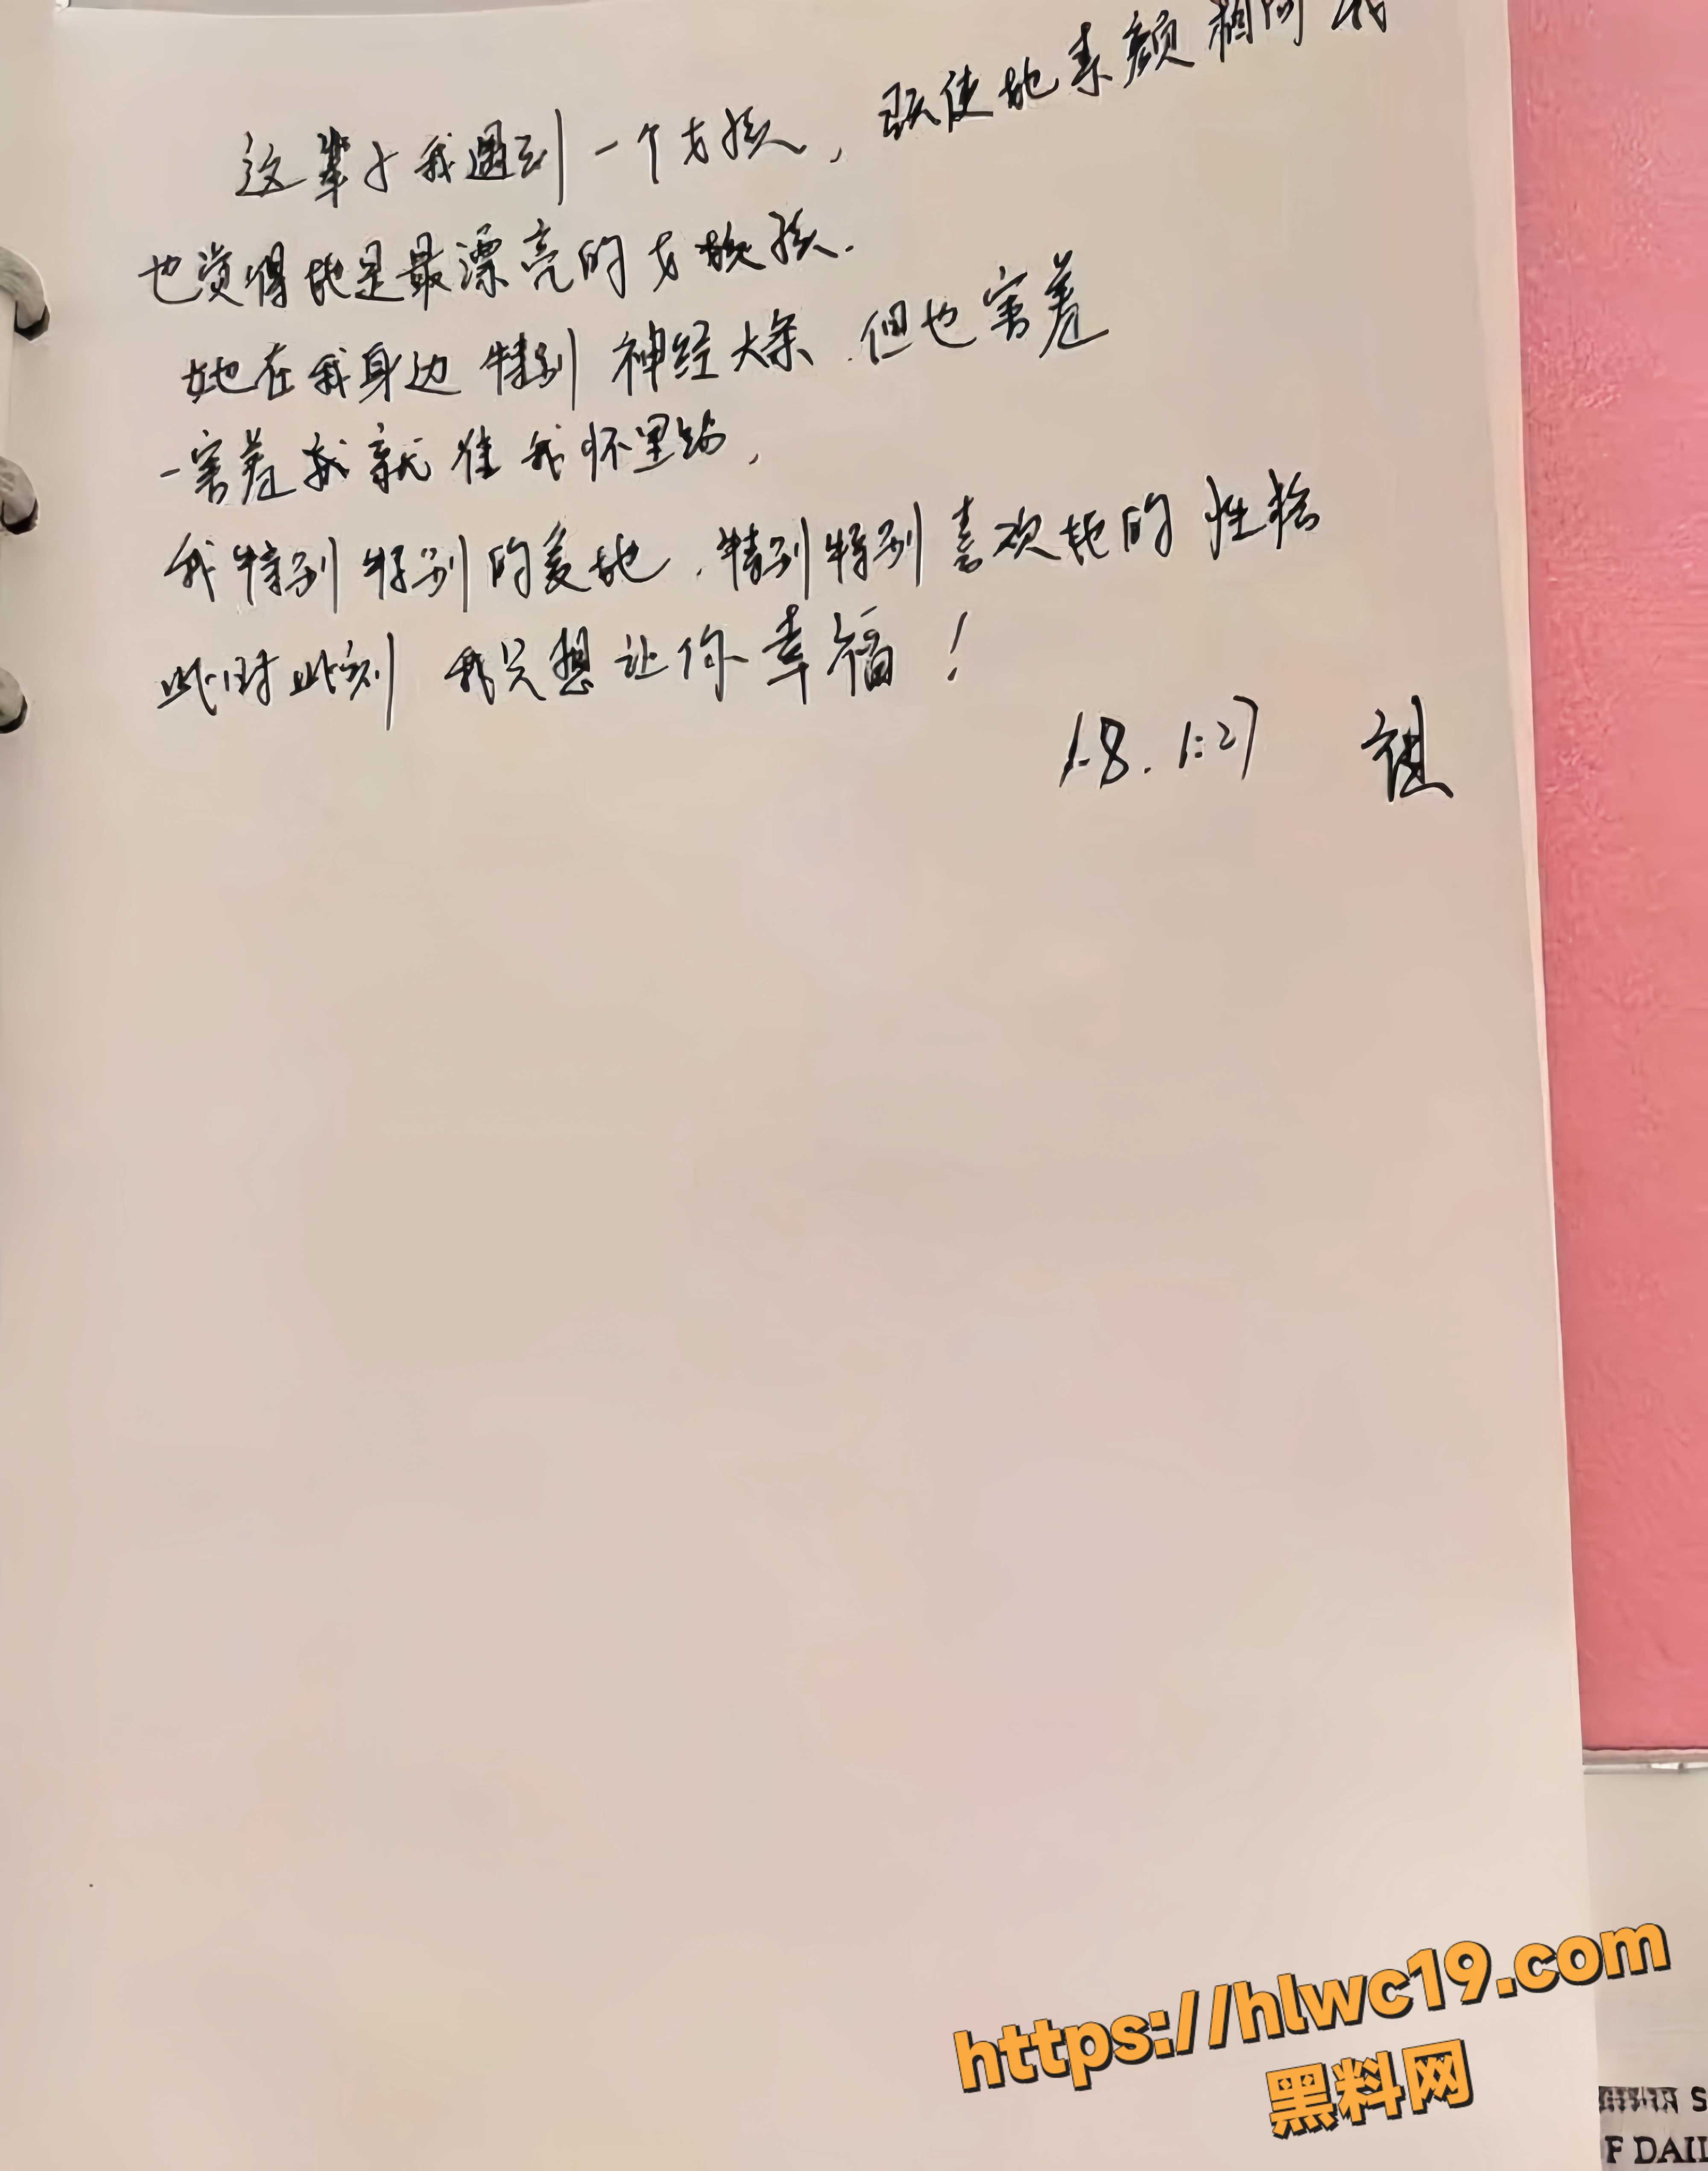 这辈子我遇到一个女孩，既使她素颜相向我
也觉得她是最漂亮的女孩.
她在我身边特别神经大条.但也害羞
一害羞就往我怀里
我特别特别的爱她.特别特别喜欢她的性格
此时此刻 我只想让你幸福！
1.8. 1:27 祖
https://hlwc19.com
黑料网
S
F DAIL